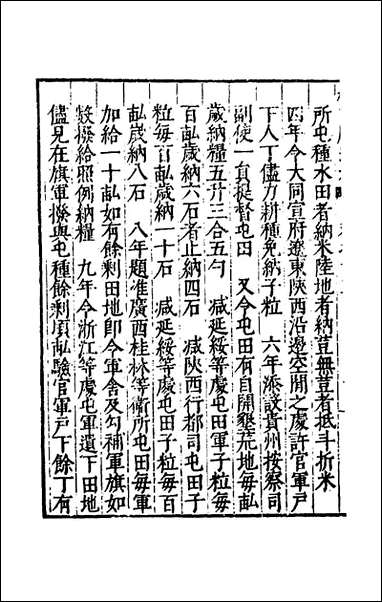 所屯種水田者納米陸地者納荳無荳者抵斗折米
四年令大同宣府遼東陝西沿邊空閒之處許官軍戸
下人丁儘力耕種免納子粒　六年添設貴州按察司
副使一員提督屯田　又令屯田有自開墾荒地每畝
歲納糧五升三合五勺　減延綏等處屯田軍子粒每
百畝歲納六石者止納四石　減陝西行都司屯田子
粒每百畝歲納一十石　減延綏等處屯田子粒每百
畝歲納八石　八年題准廣西桂林等衛所屯田每軍
加給一十畝如有餘剩田地卽令軍舍及勾補軍旗如
數撥給照例納糧　九年令浙江等處屯軍遺下田地
儘見在旗軍撥與屯種餘剩頃畝驗官軍戸下餘丁有